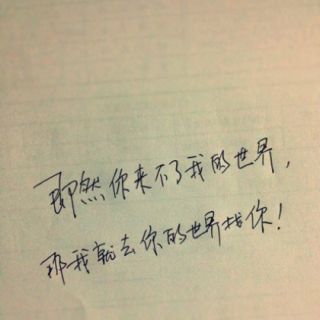 即然你来不了我的世界，
那我就去你的世界找你！